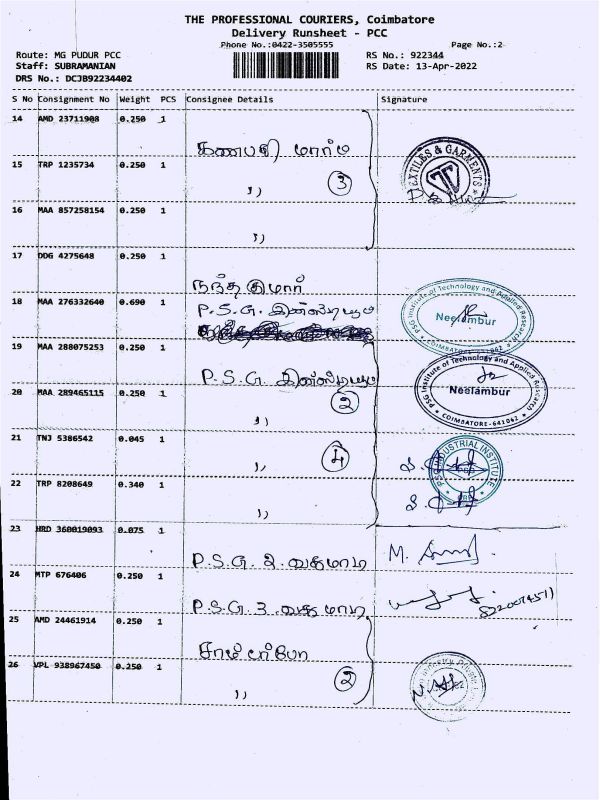 THE PROFESSIONAL COURIERS, Coimbatore
Delivery Runsheet - PCC
Phone No.:0422-3505555 Page No.:2
Route: MG PUDUR PCC RS No.: 922344
Staff: SUBRAMANIAN RS Date: 13-Apr-2022
DRS No.: DCJB92234402
S No Consignment No Weight PCS Consignee Details Signature
14 AMD 23711908 0.250 1
கணபதி மார்ம
TEXTILES & GARMENTS
15 TRP 1235734 0.250 1
,, 3
16 MAA 857258154 0.250 1
,,
17 DDG 4275648 0.250 1
நந்தகுமார்
18 MAA 276332640 0.690 1 P.S.G.
PSG Institute of Technology and Applied Research
Neelambur
COIMBATORE
19 MAA 288075253 0.250 1
P.S.G.
PSG Institute of Technology and Applied Research
Neelambur
COIMBATORE-641062
20 MAA 289465115 0.250 1 2
,,
21 TNJ 5386542 0.045 1
,, 4
PSG INDUSTRIAL INSTITUTE
22 TRP 8208649 0.340 1
,,
23 HRD 360019093 0.075 1
P.S.G. 2. M.
24 MTP 676406 0.250 1
P.S.G. 3.
25 AMD 24461914 0.250 1
26 VPL 938967450 0.250 1 2
,,